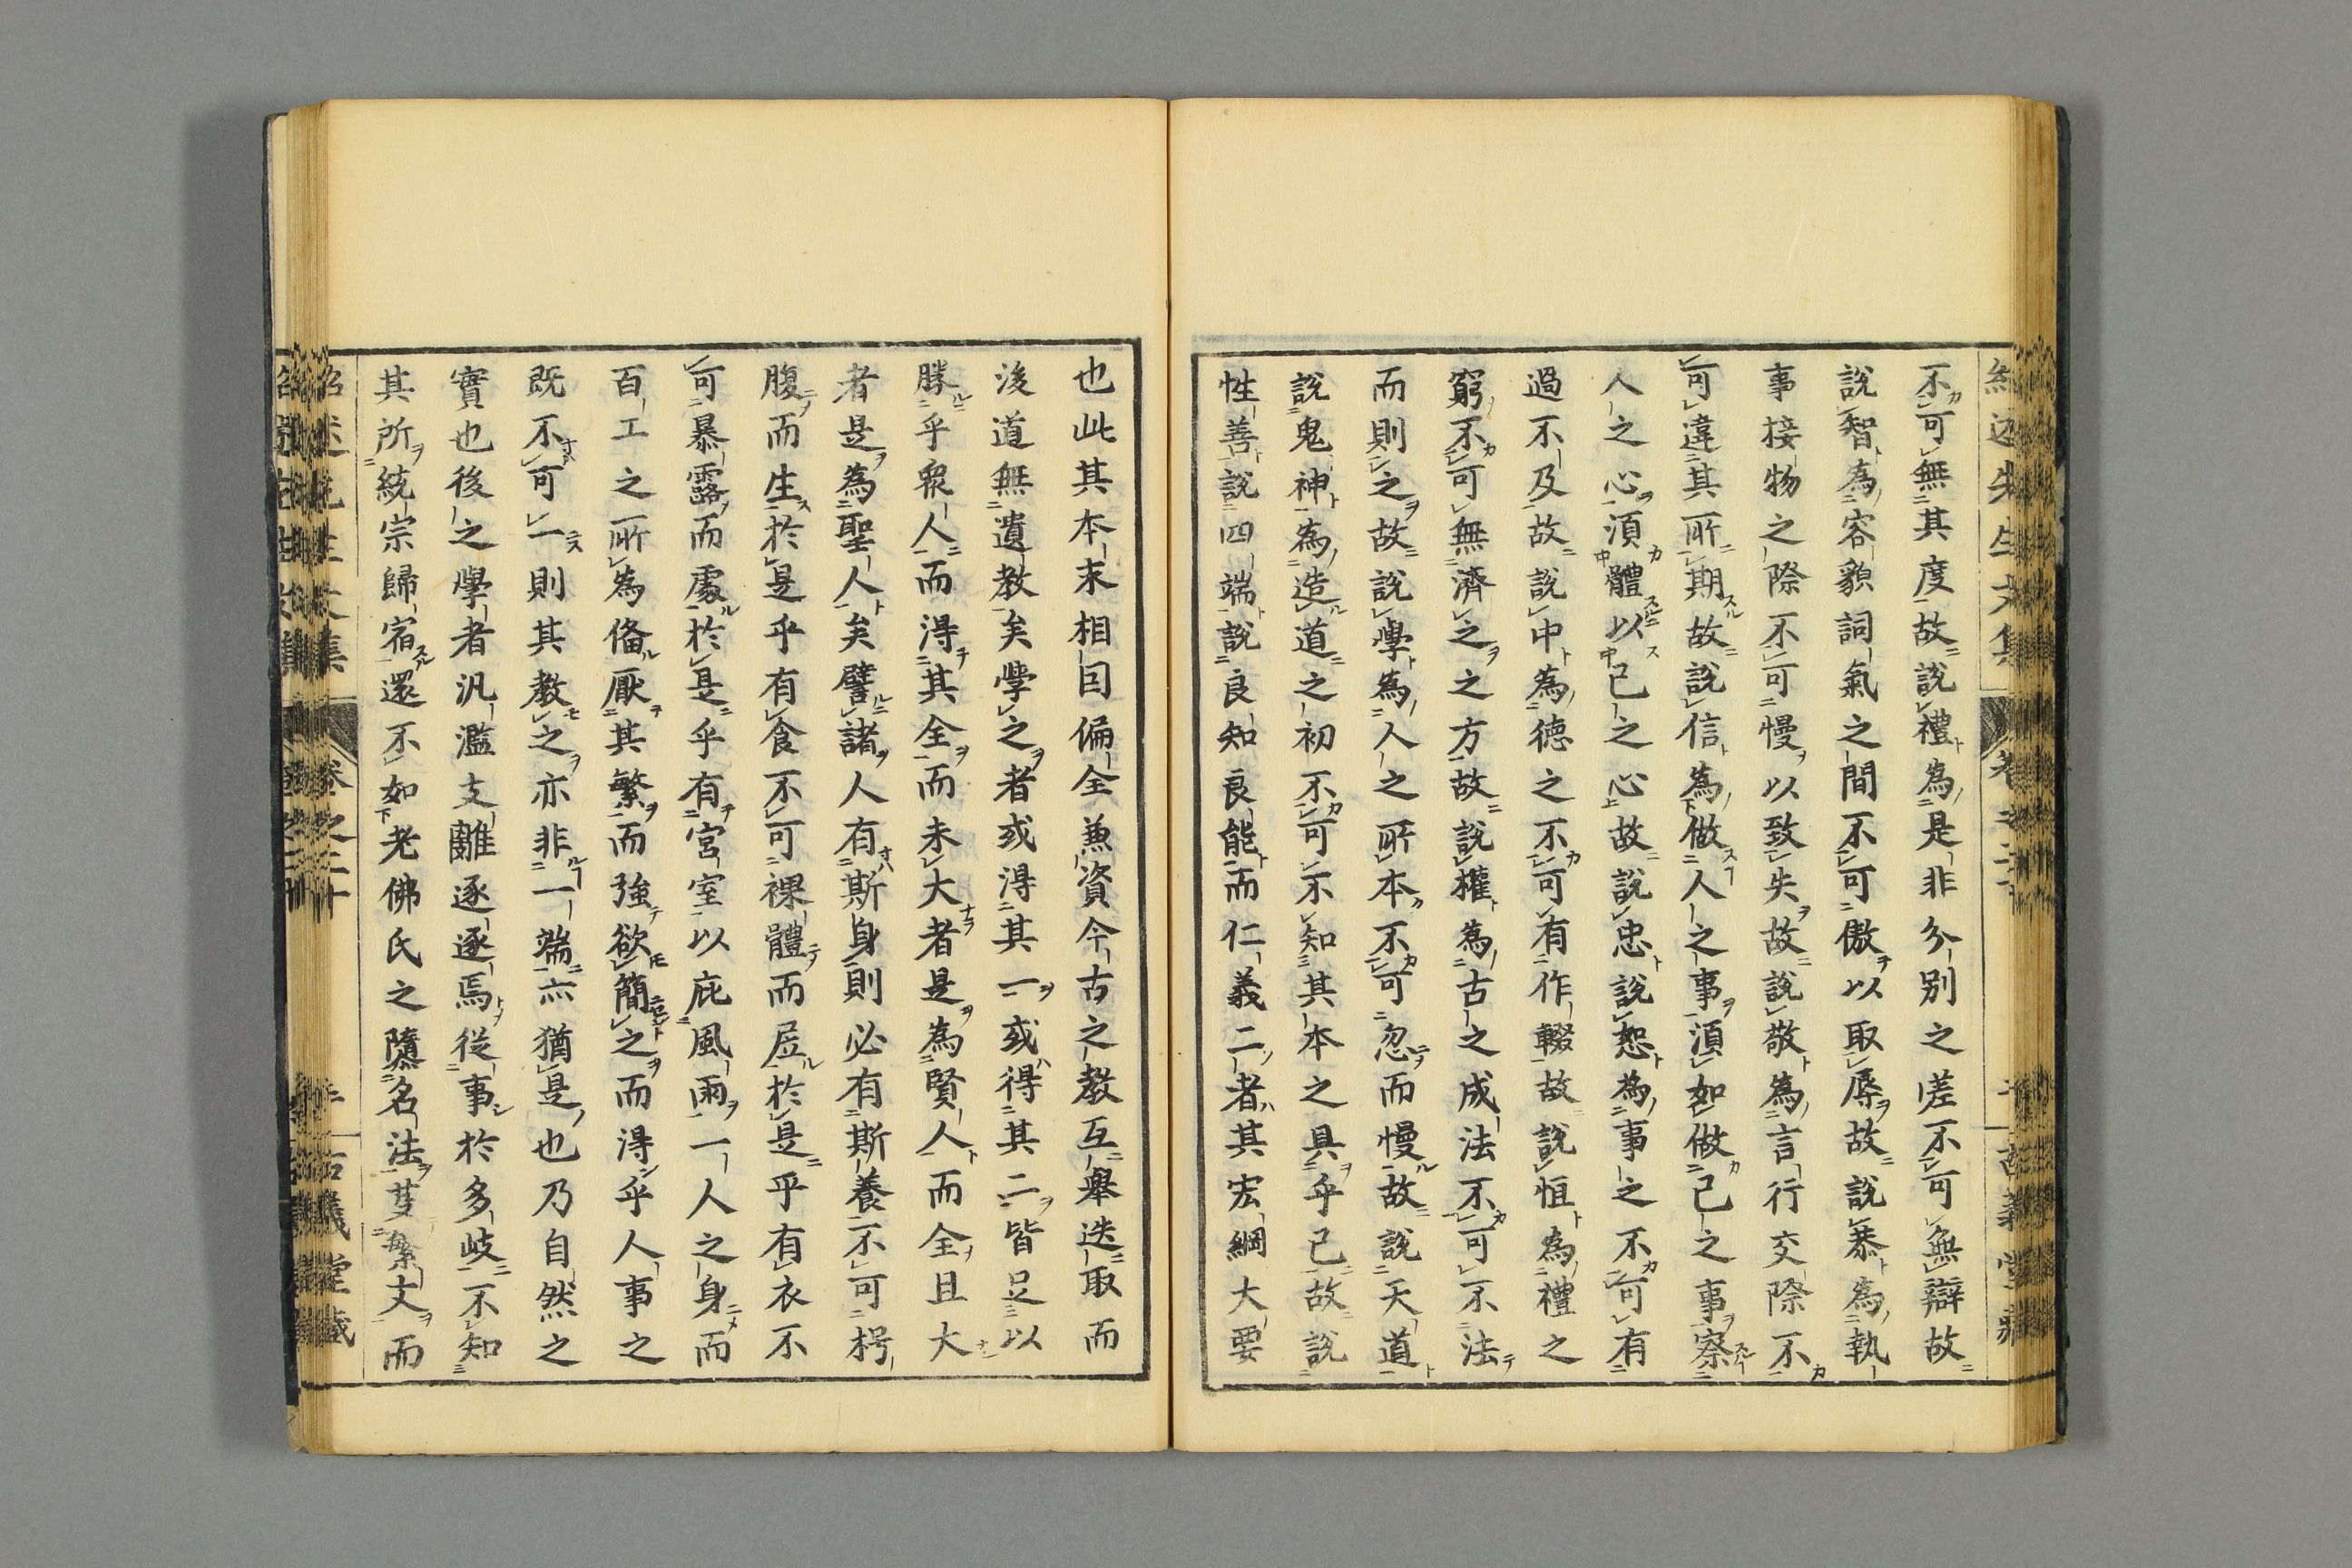 不可無其度故說禮為是非分別之差不可無辯故
說智為容貌詞氣之間不可傲以取辱故說恭為執
事接物之際不可慢以致失故說敬為言行交際不
可違其所期故說信為做人之事須如做己之事察
人之心須體以己之心故說忠說恕為事之不可有
過不及故說中為德之不可有作輟故說恒為禮之
窮不可無濟之之方故說權為古之成法不可不法
而則之故說學為人之所本不可忽而慢故說天道
說鬼神為造道之初不可不知其本之具乎己故說
性善說四端說良知良能而仁義二者其宏綱大要
也此其本末相因偏全兼資今古之教互舉迭取而
後道無遺教矣學之者或得其一或得其二皆足以
勝乎眾人而得其全而未大者是為賢人而全且大
者是為聖人矣譬諸人有斯身則必有斯養不可枵
腹而生於是乎有食不可裸體而居於是乎有衣不
可暴露而處於是乎有宮室以庇風雨一人之身而
百工之所為俻厭其繁而強欲簡之而得乎人事之
既不可一則其教之亦非一端亦猶是也乃自然之
實也後之學者汎濫支離逐逐焉從事於多岐不知
其所統宗歸宿還不如老佛氏之隳名法芟繁文而
紹述先生文集 卷之二十 古義堂藏